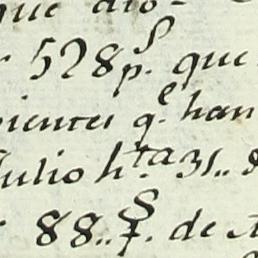 que dio
528 p.s que
cientes q.e han
Julio h.ta 31..
88.. p.s de